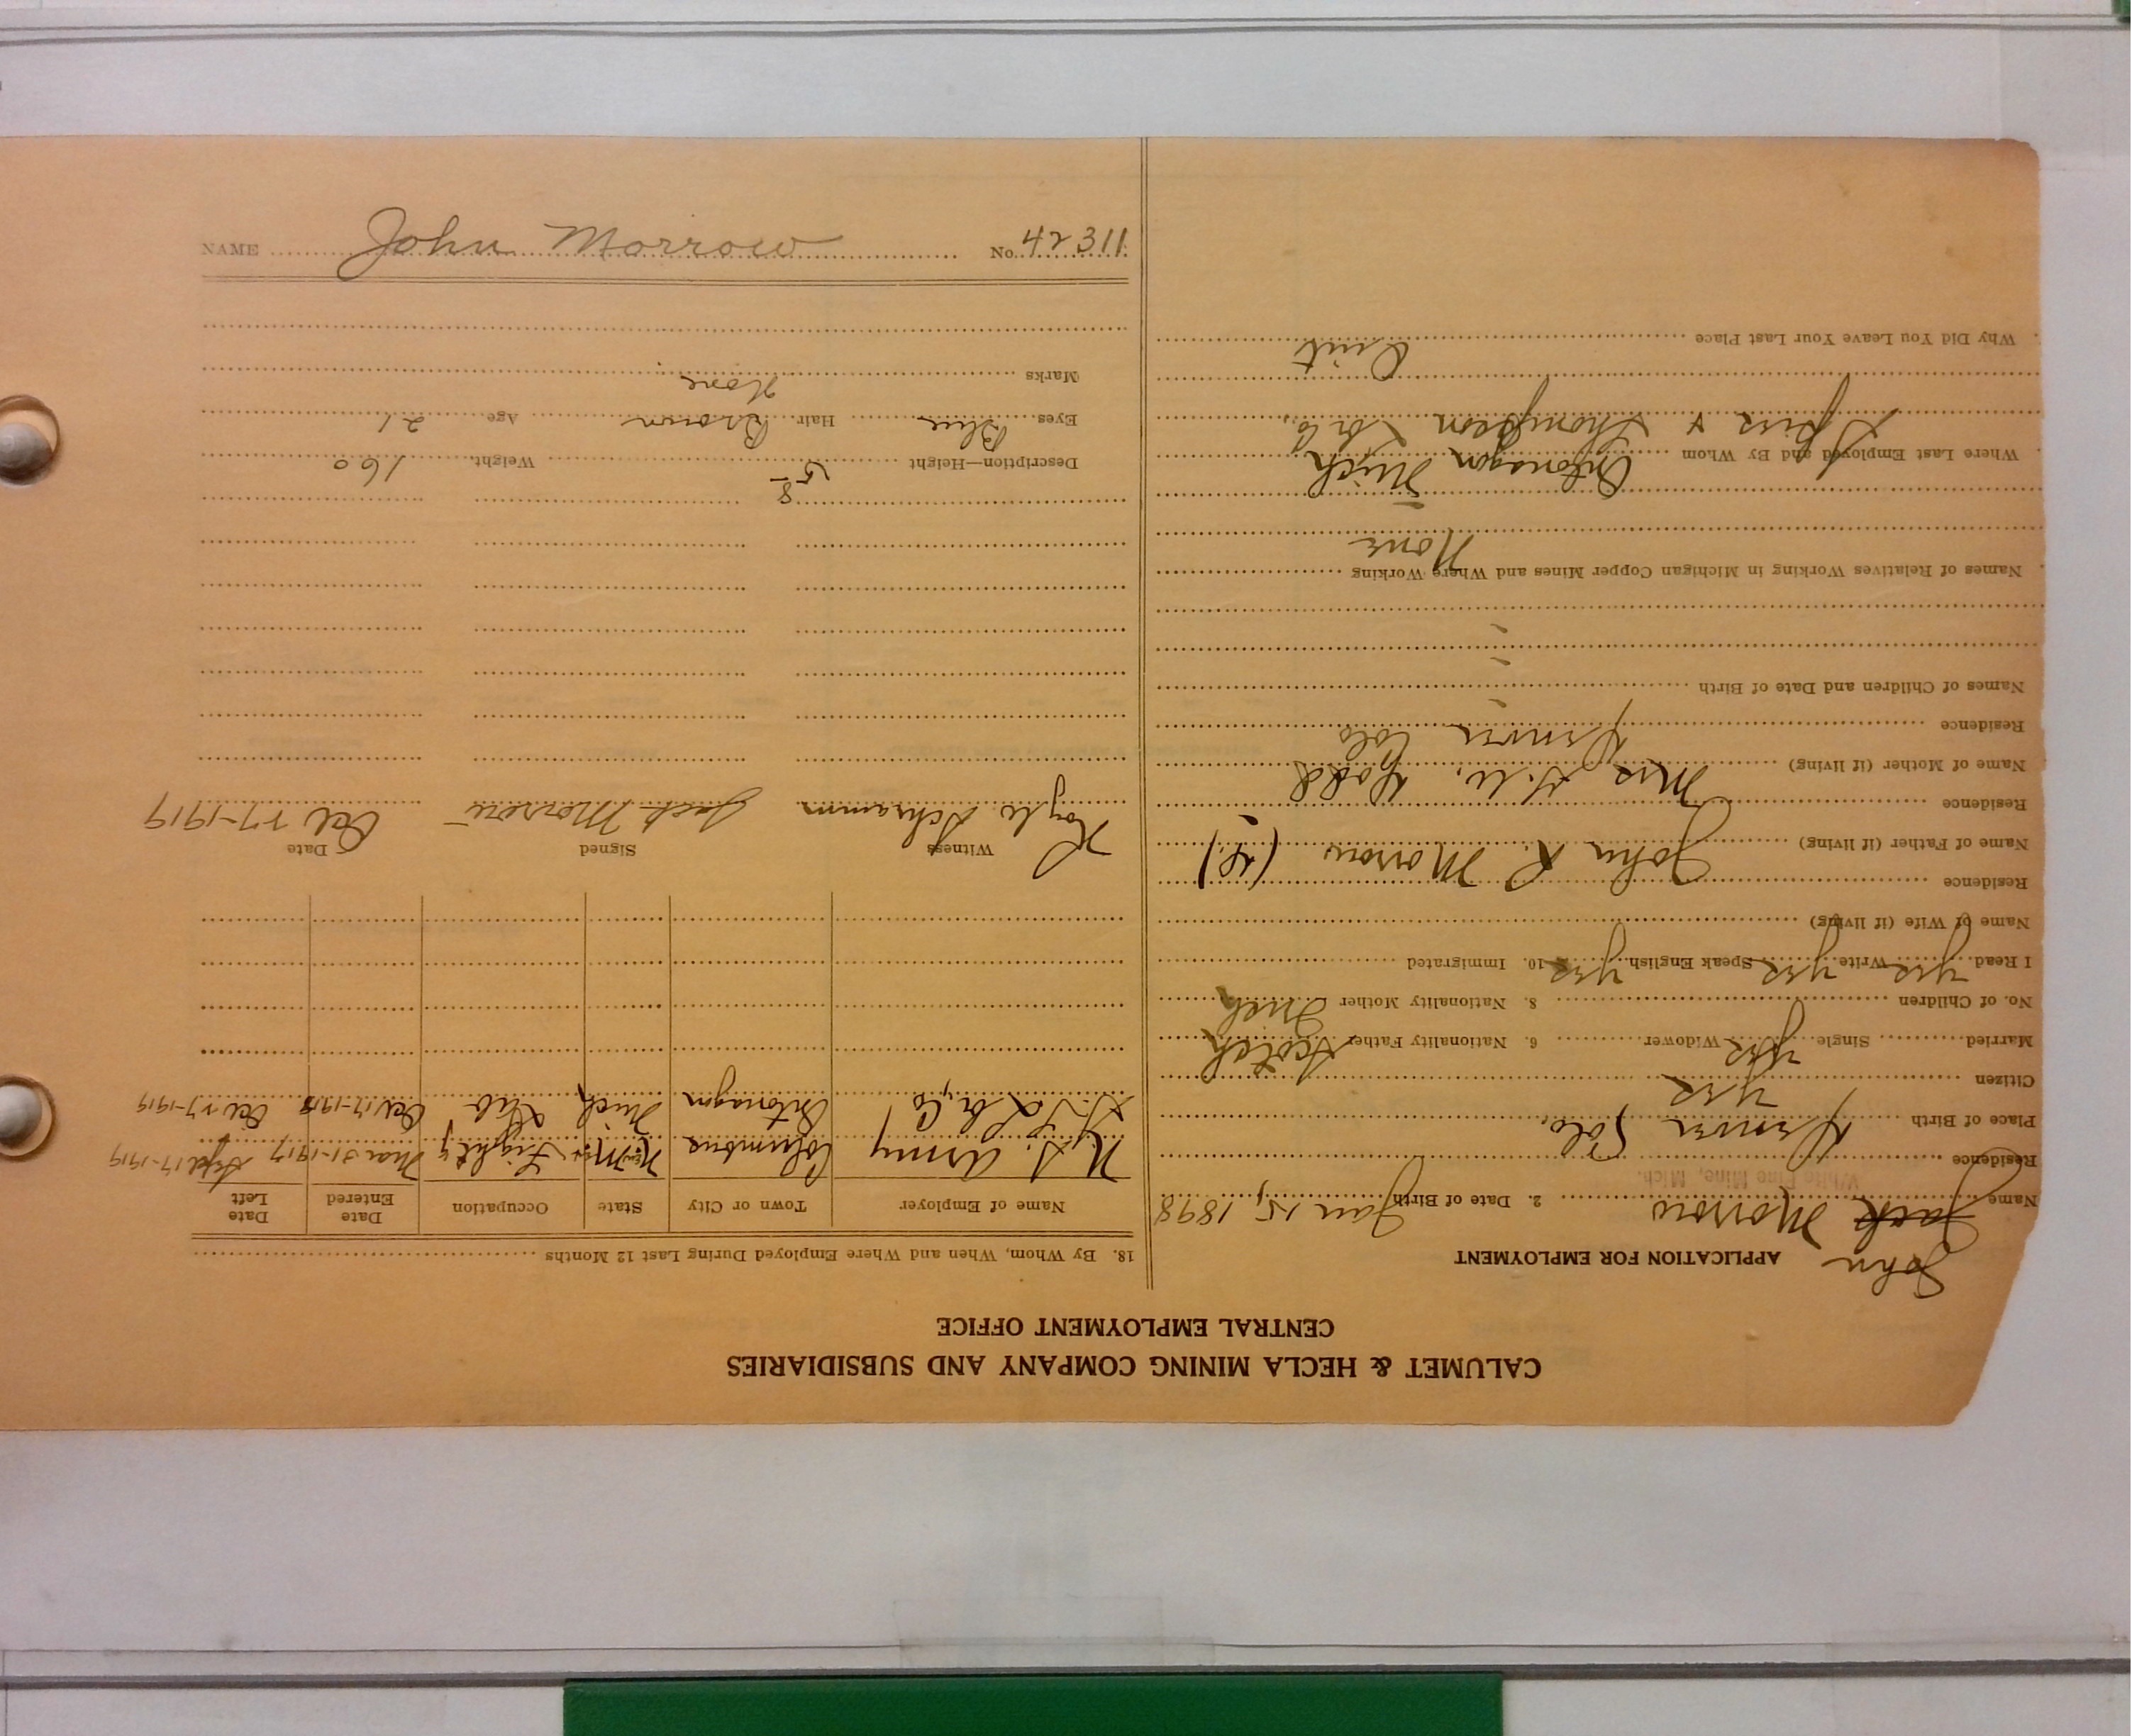 CALUMET & HECLA MINING COMPANY AND SUBSIDIARIES
CENTRAL EMPLOYMENT OFFICE
APPLICATION FOR EMPLOYMENT
John
Name Jack Morrow 2. Date of Birth Jan 15, 1898
White Pine Mine, Mich.
Residence
Place of Birth Denver Colo.
Citizen yes
Married Single yes Widower 6. Nationality Father Scotch
No. of Children 8. Nationality Mother
I Read yes Write yes Speak English yes 10. Immigrated
Name of Wife (if living)
Residence
Name of Father (if living) John R Morrow
Residence
Name of Mother (if living) Mrs
Residence Denver Colo
Names of Children and Date of Birth
Names of Relatives Working in Michigan Copper Mines and Where Working
None
Where Last Employed and By Whom Ontonagon Mich
Thompson
Why Did You Leave Your Last Place Quit
18. By Whom, When and Where Employed During Last 12 Months
Name of Employer Town or City State Occupation Date Entered Date Left
U.S. Army Columbus N. M. Mar 31-1917 Sept 17-1919
Ontonagon Mich
Witness Signed Date
Schramm Jack Morrow 1919
Description—Height 5 8 Weight 160
Eyes Blue Hair Brown Age 21
Marks None
NAME John Morrow No. 42311